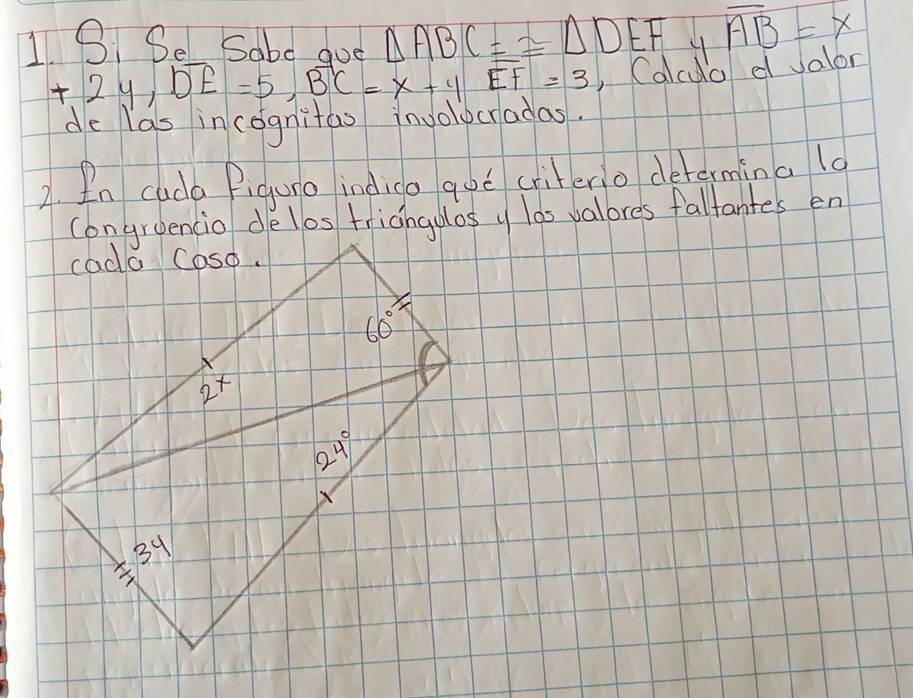 1. Si Se Sabe que ΔABC = ≅ ΔDEF y A̅B̅ = x
+ 2y, D̅E̅ = 5, B̅C̅ = x + y E̅F̅ = 3, Calcula el valor
de las incógnitas involucradas.
2. En cada figura indica qué criterio determina la
Congruencia de los triángulos y los valores faltantes en
cada Caso.
60°
2x
24°
3y